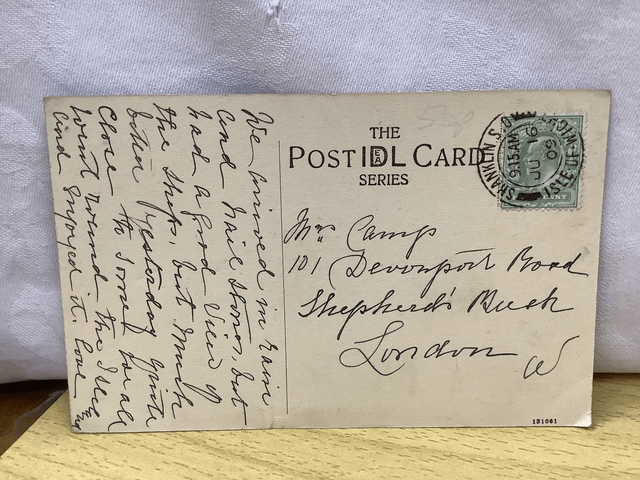 We arrived in Raine
and hail stones, but
had a good View of
the Ships, but Much
better yesterday quite
Close to Some. all
Went round the Isle
and Enjoyed it. Love
THE
POST IDL CARD
SERIES
Mrs Camp
101 Devonport Road
Shepherd's Bush
London W
SHANKLIN S.O
9.15AM
JU 6
09
ISLE OF WIGH
NNY
181061